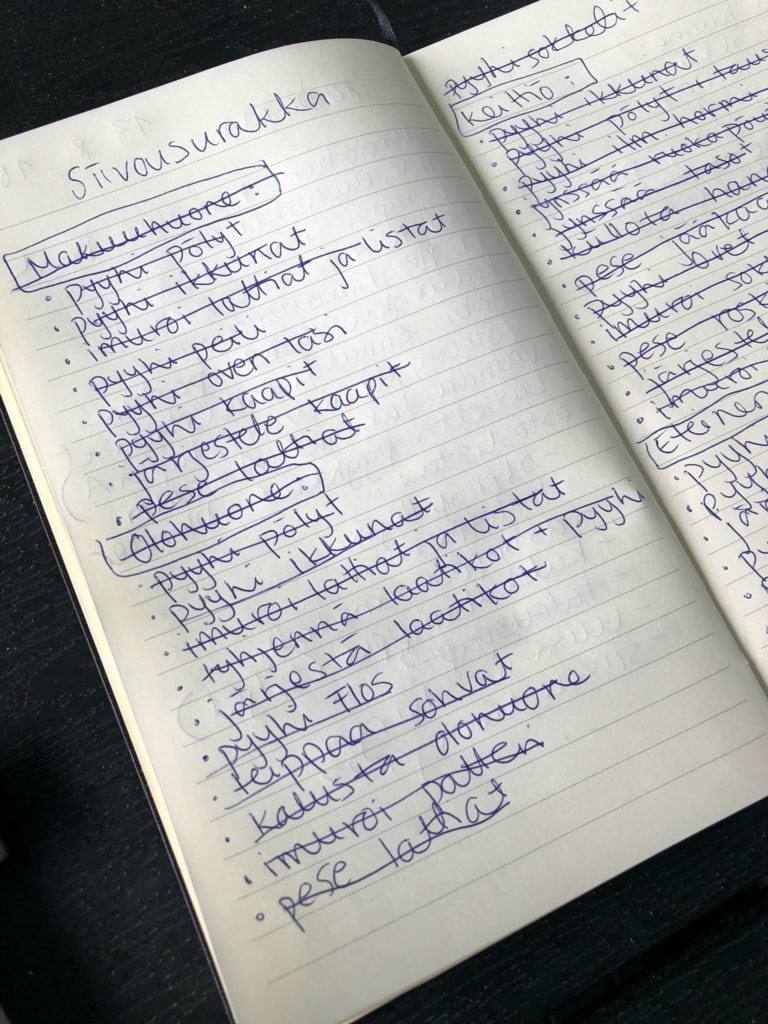 Siivousurakka
Makuuhuone:
• pyyhi pölyt
• pyyhi ikkunat
• imuroi lattiat ja listat
• pyyhi peili
• pyyhi oven lasi
• pyyhi kaapit
• järjestele kaapit
• pese lattiat
Olohuone:
• pyyhi pölyt
• pyyhi ikkunat
• imuroi lattiat ja listat
• tyhjennä laatikot + pyyhi
• järjestä laatikot
• pyyhi
• teippaa sohvat
• kalusta olohuone
• imuroi patteri
• pese lattiat
pyyhi sokkelit
Keittiö:
• pyyhi ikkunat
• pyyhi pölyt
• pyyhi ilm
• jynssää
• jynssää tasot
• kiillota
• pese
• pyyhi
• imuroi
• pese
• järjestel
• imuroi
• pyyhi
• pyyh